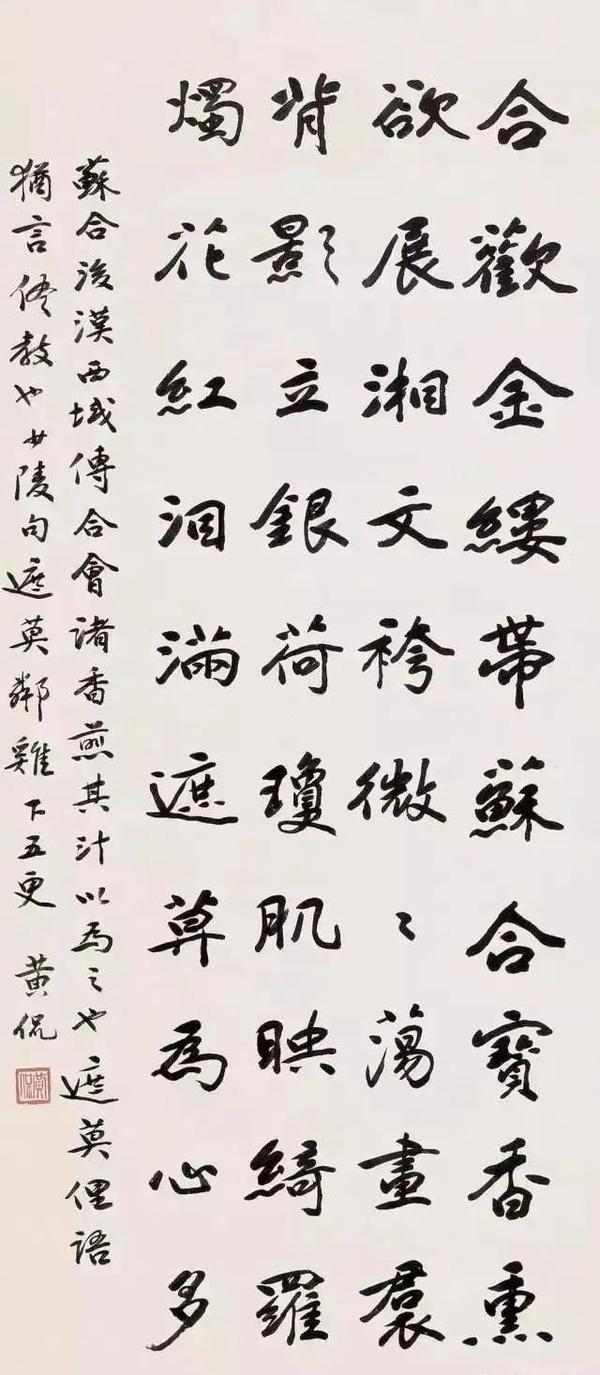 合歡金縷帶蘇合寶香熏
欲展湘文袴微〻蕩畫裠
背影立銀荷瓊肌映綺羅
燭花紅泪滿遮莫為心多
蘇合後漢西域傳合會諸香煎其汁以為之也遮莫俚語
猶言侭教也少陵句遮莫鄰雞下五更 黃侃
黃侃